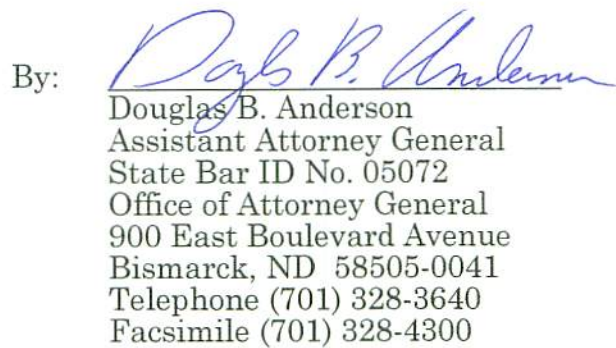 By: Douglas B. Anderson
Douglas B. Anderson
Assistant Attorney General
State Bar ID No. 05072
Office of Attorney General
900 East Boulevard Avenue
Bismarck, ND  58505-0041
Telephone (701) 328-3640
Facsimile (701) 328-4300